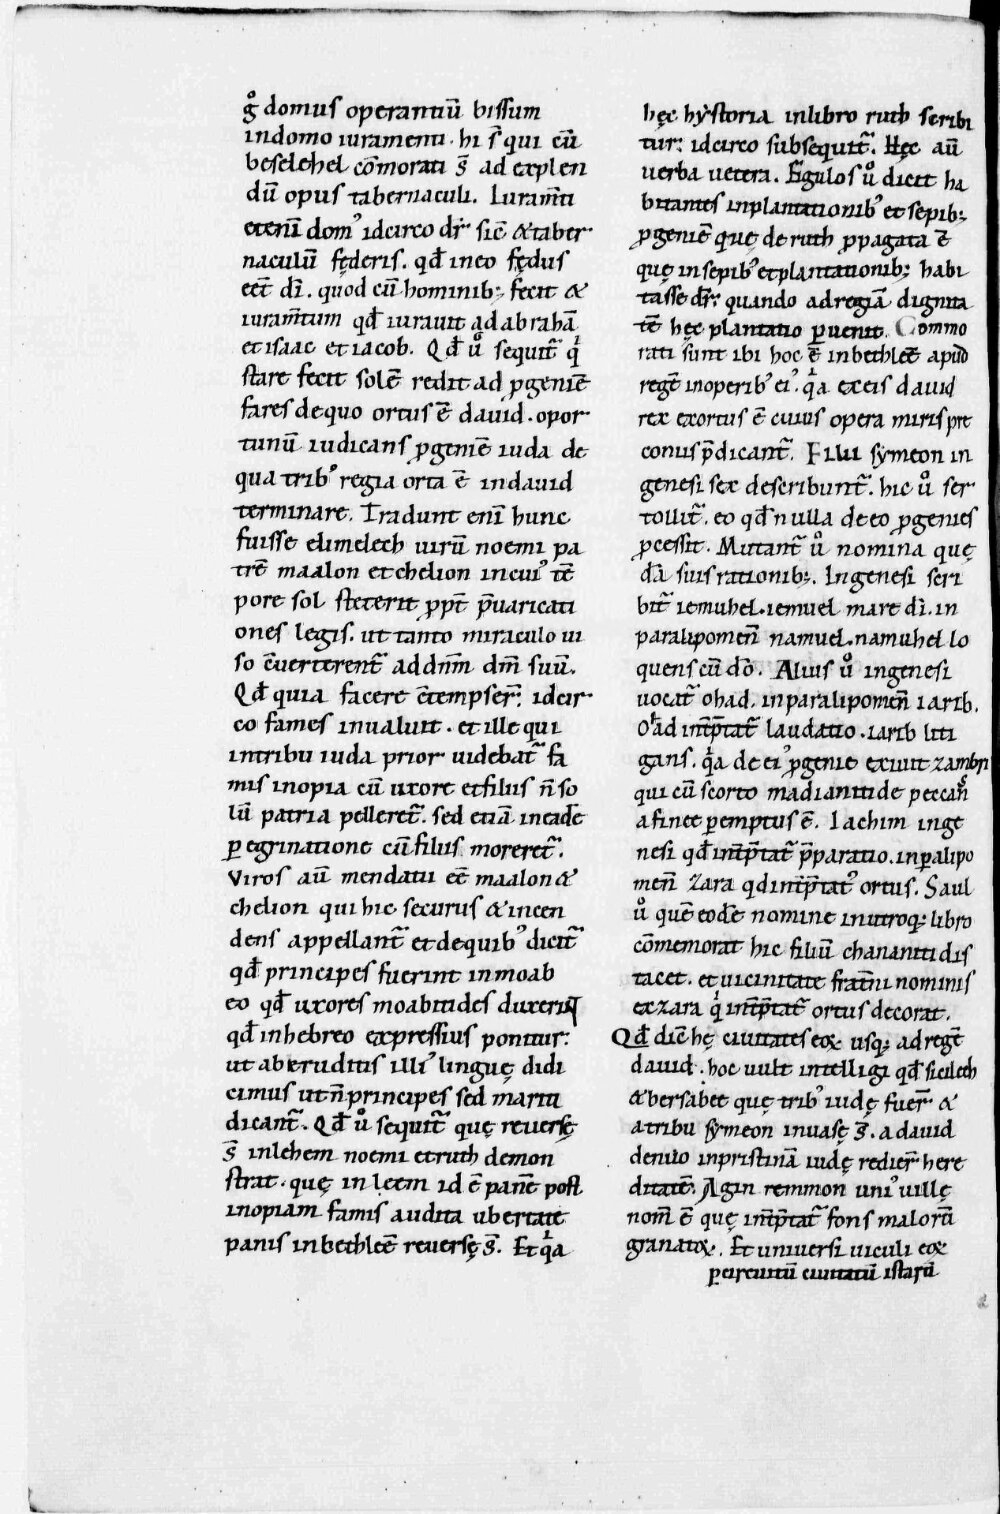 g̊ domus operantiū bissum
indomo iuramenti. hi s̄ qui cū
beselehel cōmorati s̄ ad explen
dū opus tabernaculi. Iuram̄ti
etenī domꝰ idcirco dr̄ sic̄ & taber
naculū fęderis. qd̄ ineo fędus
eēt dī. quod cū hominib; fecit &
iuram̄tum qd̄ iurauit adabrahā
et isaac et iacob. Qd̄ ů sequit᷑ qͥ
stare fecit solē redit ad ꝓgeniē
fares dequo ortus ē dauid. opor
tunū iudicans ꝓgeniē iuda de
qua tribꝰ regia orta ē indauid
terminare. Tradunt enī hunc
fuisse elimelech uirū noemi pa
trē maalon et chelion in cuiꝰ tē
pore sol steterit ꝓpt̄ p̄uaricati
ones legis. ut tanto miraculo ui
so c̄uerterent᷑ addn̄m dm̄ suū.
Qd̄ quia facere c̄tempser̄. idcir
co fames inualuit. et ille qui
intribu iuda prior uidebat᷑ fa
mis inopia cū uxore et filiis n̄ so
lū patria pelleret᷑. sed etiā ineadē
ꝑegrinatione cū filiis moreret᷑.
Viros aū mendatii eē maalon &
chelion qui hic securus & incen
dens appellant᷑ et dequibꝰ dicit᷑
qd̄ principes fuerint inmoab
eo qd̄ uxores moabitides duxerit
qd̄ inhebreo expressius ponitur:
ut aberuditis illiꝰ linguę didi
cimus ut n̄ principes sed mariti
dicant᷑. Qd̄ ů sequit᷑ quę reuersę
s̄ inlehem noemi et ruth demon
strat. quę in leem id ē panē post
inopiam famis audita ubertate
panis inbethleē reuersę s̄. Et qͥa
hęc hẏstoria inlibro ruth scribi
tur: idcirco subsequit᷑. Hęc aū
uerba uetera. Figulos ů dicit ha
bitantes inplantationibꝰ et sepib;
ꝓgeniē quę de ruth ꝓpagata ē
quę insepibꝰ et plantationib; habi
tasse dr̄: quando adregiā dignita
tē hęc plantatio ꝑuenit. Commo
rati sunt ibi hoc ē inbethleē apud
regē inoperibꝰ eiꝰ. qͥa ex eis dauid
rex exortus ē cuius opera miris pre
coniis p̄dicant᷑. Filii sẏmeon in
genesi sex describunt᷑. hic ů ser
tollit᷑. eo qd̄ nulla de eo ꝓgenies
ꝓcessit. Mutant᷑ ů nomina quę
dā suis rationib;. Ingenesi scri
bit᷑ iemuhel. iemuel mare dī. in
paralipomen̄ namuel. namuhel lo
quens cū dō. Alius ů ingenesi
uocat᷑ ohad. inparalipomen̄ iarib.
Ohad int̄p̄tat᷑ laudatio. iarib liti
gans. qͥa de eiꝰ ꝓgenie exiuit zambri
qui cū scorto madianitide peccan̊
afinee ꝑemptus ē. Iachim inge
nesi qd̄ int̄p̄tat᷑ p̄paratio. inꝑalipo
men̄ zara qd int̄p̄tatꝰ ortus. Saul
ů quē eodē nomine inutroq; libro
cōmemorat hic filiū chananitidis
tacet. et uicinitate frat̄ni nominis
exzara qͥ int̄p̄tat᷑ ortus decorat.
Qd̄ dic̄ hę ciuitates eoꝝ usq; adregē
dauid. hoc uult intelligi qd̄ sicilech
& bersabee quę tribꝰ iudę fuer̄ &
atribu sẏmeon inuasę s̄. adauid
denuo inpristinā iudę redier̄ here
ditatē. Agin remmon uniꝰ uillę
nom̄ ē quę int̄p̄tat᷑ fons maloꝝ
granatoꝝ. Et uniuersi uiculi eoꝝ
ꝑcircuitū ciuitatū istarū